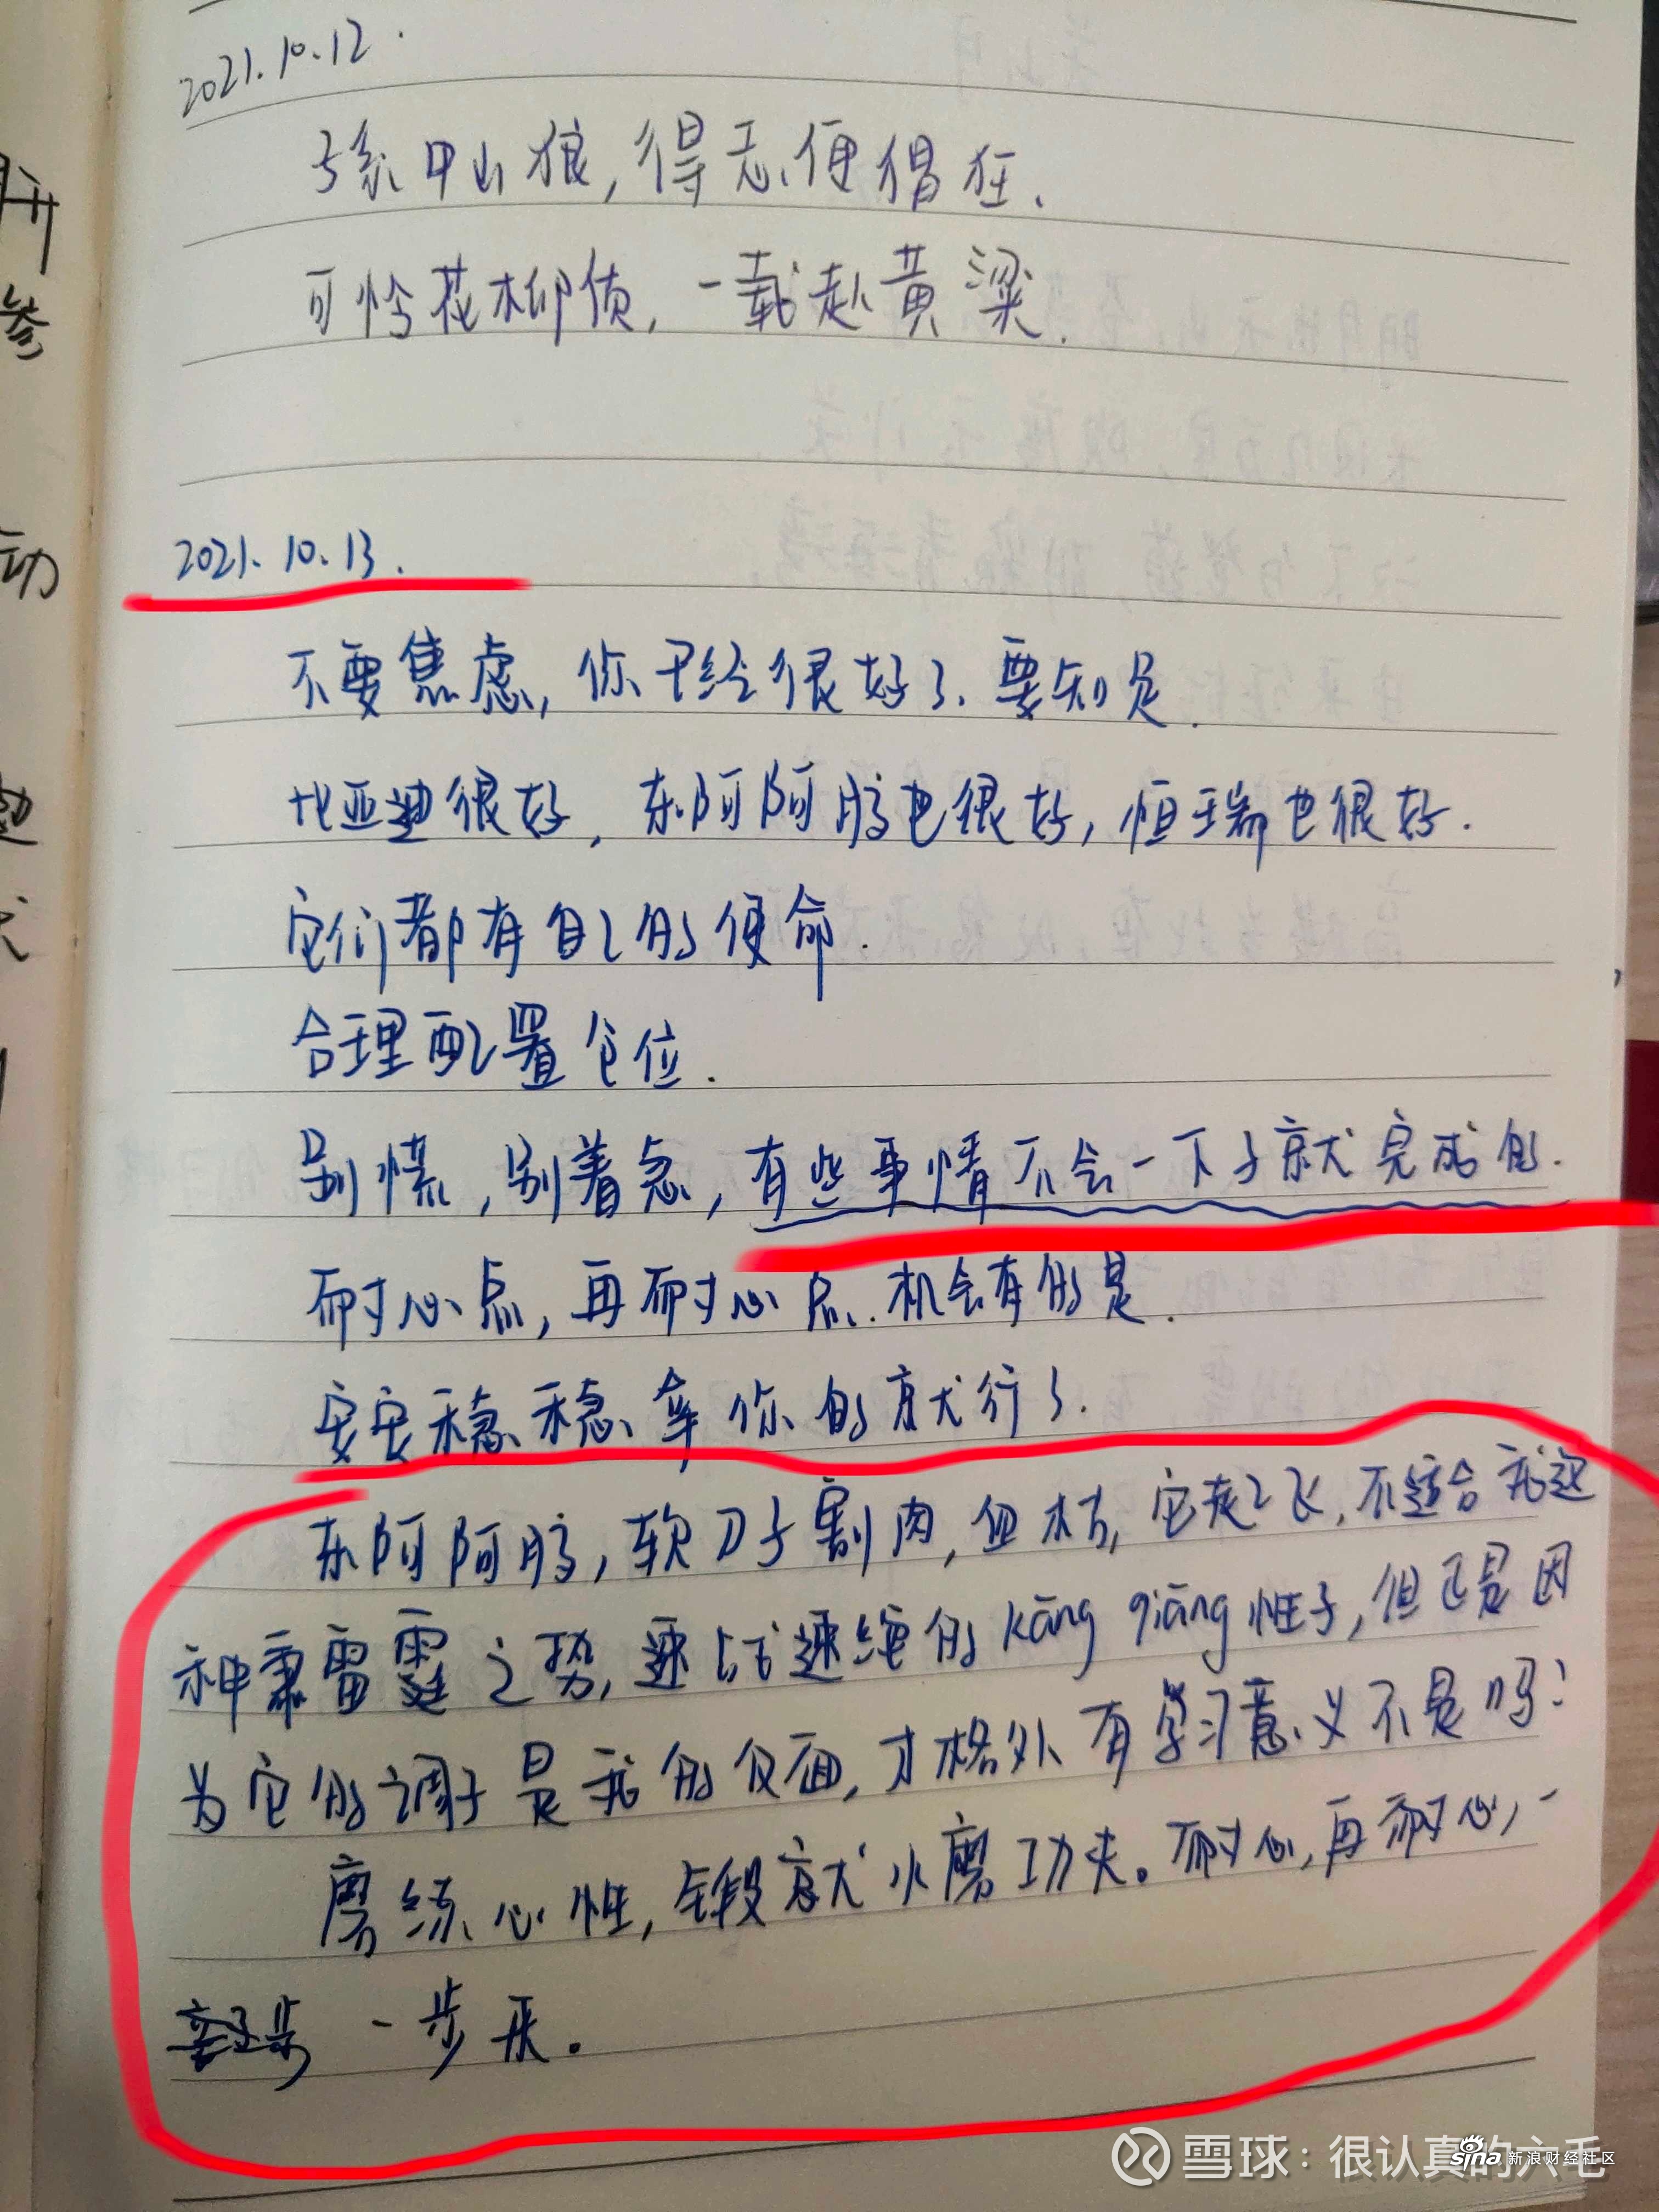 2021.10.12.
子系中山狼，得志便猖狂.
可怜花柳质，一载赴黄粱.
2021.10.13.
不要焦虑，你已经很好了.要知足.
比亚迪很好，东阿阿胶也很好，恒瑞也很好.
它们都有自己的使命.
合理配置仓位.
别慌，别着急，有些事情不会一下子就完成的.
耐心点，再耐心点.机会有的是.
安安稳稳拿你的就行了.
东阿阿胶，软刀子割肉，但极，它起飞，不适合我这
种秉雷霆之势，速战速绝的kāng qiāng性子，但正是因
为它的调子是我的反面，才格外有学习意义不是吗？
磨练心性，锻就水磨功夫。耐心，再耐心，一
一步来。
开
参
动
雪球：很认真的六毛
sina 新浪财经社区